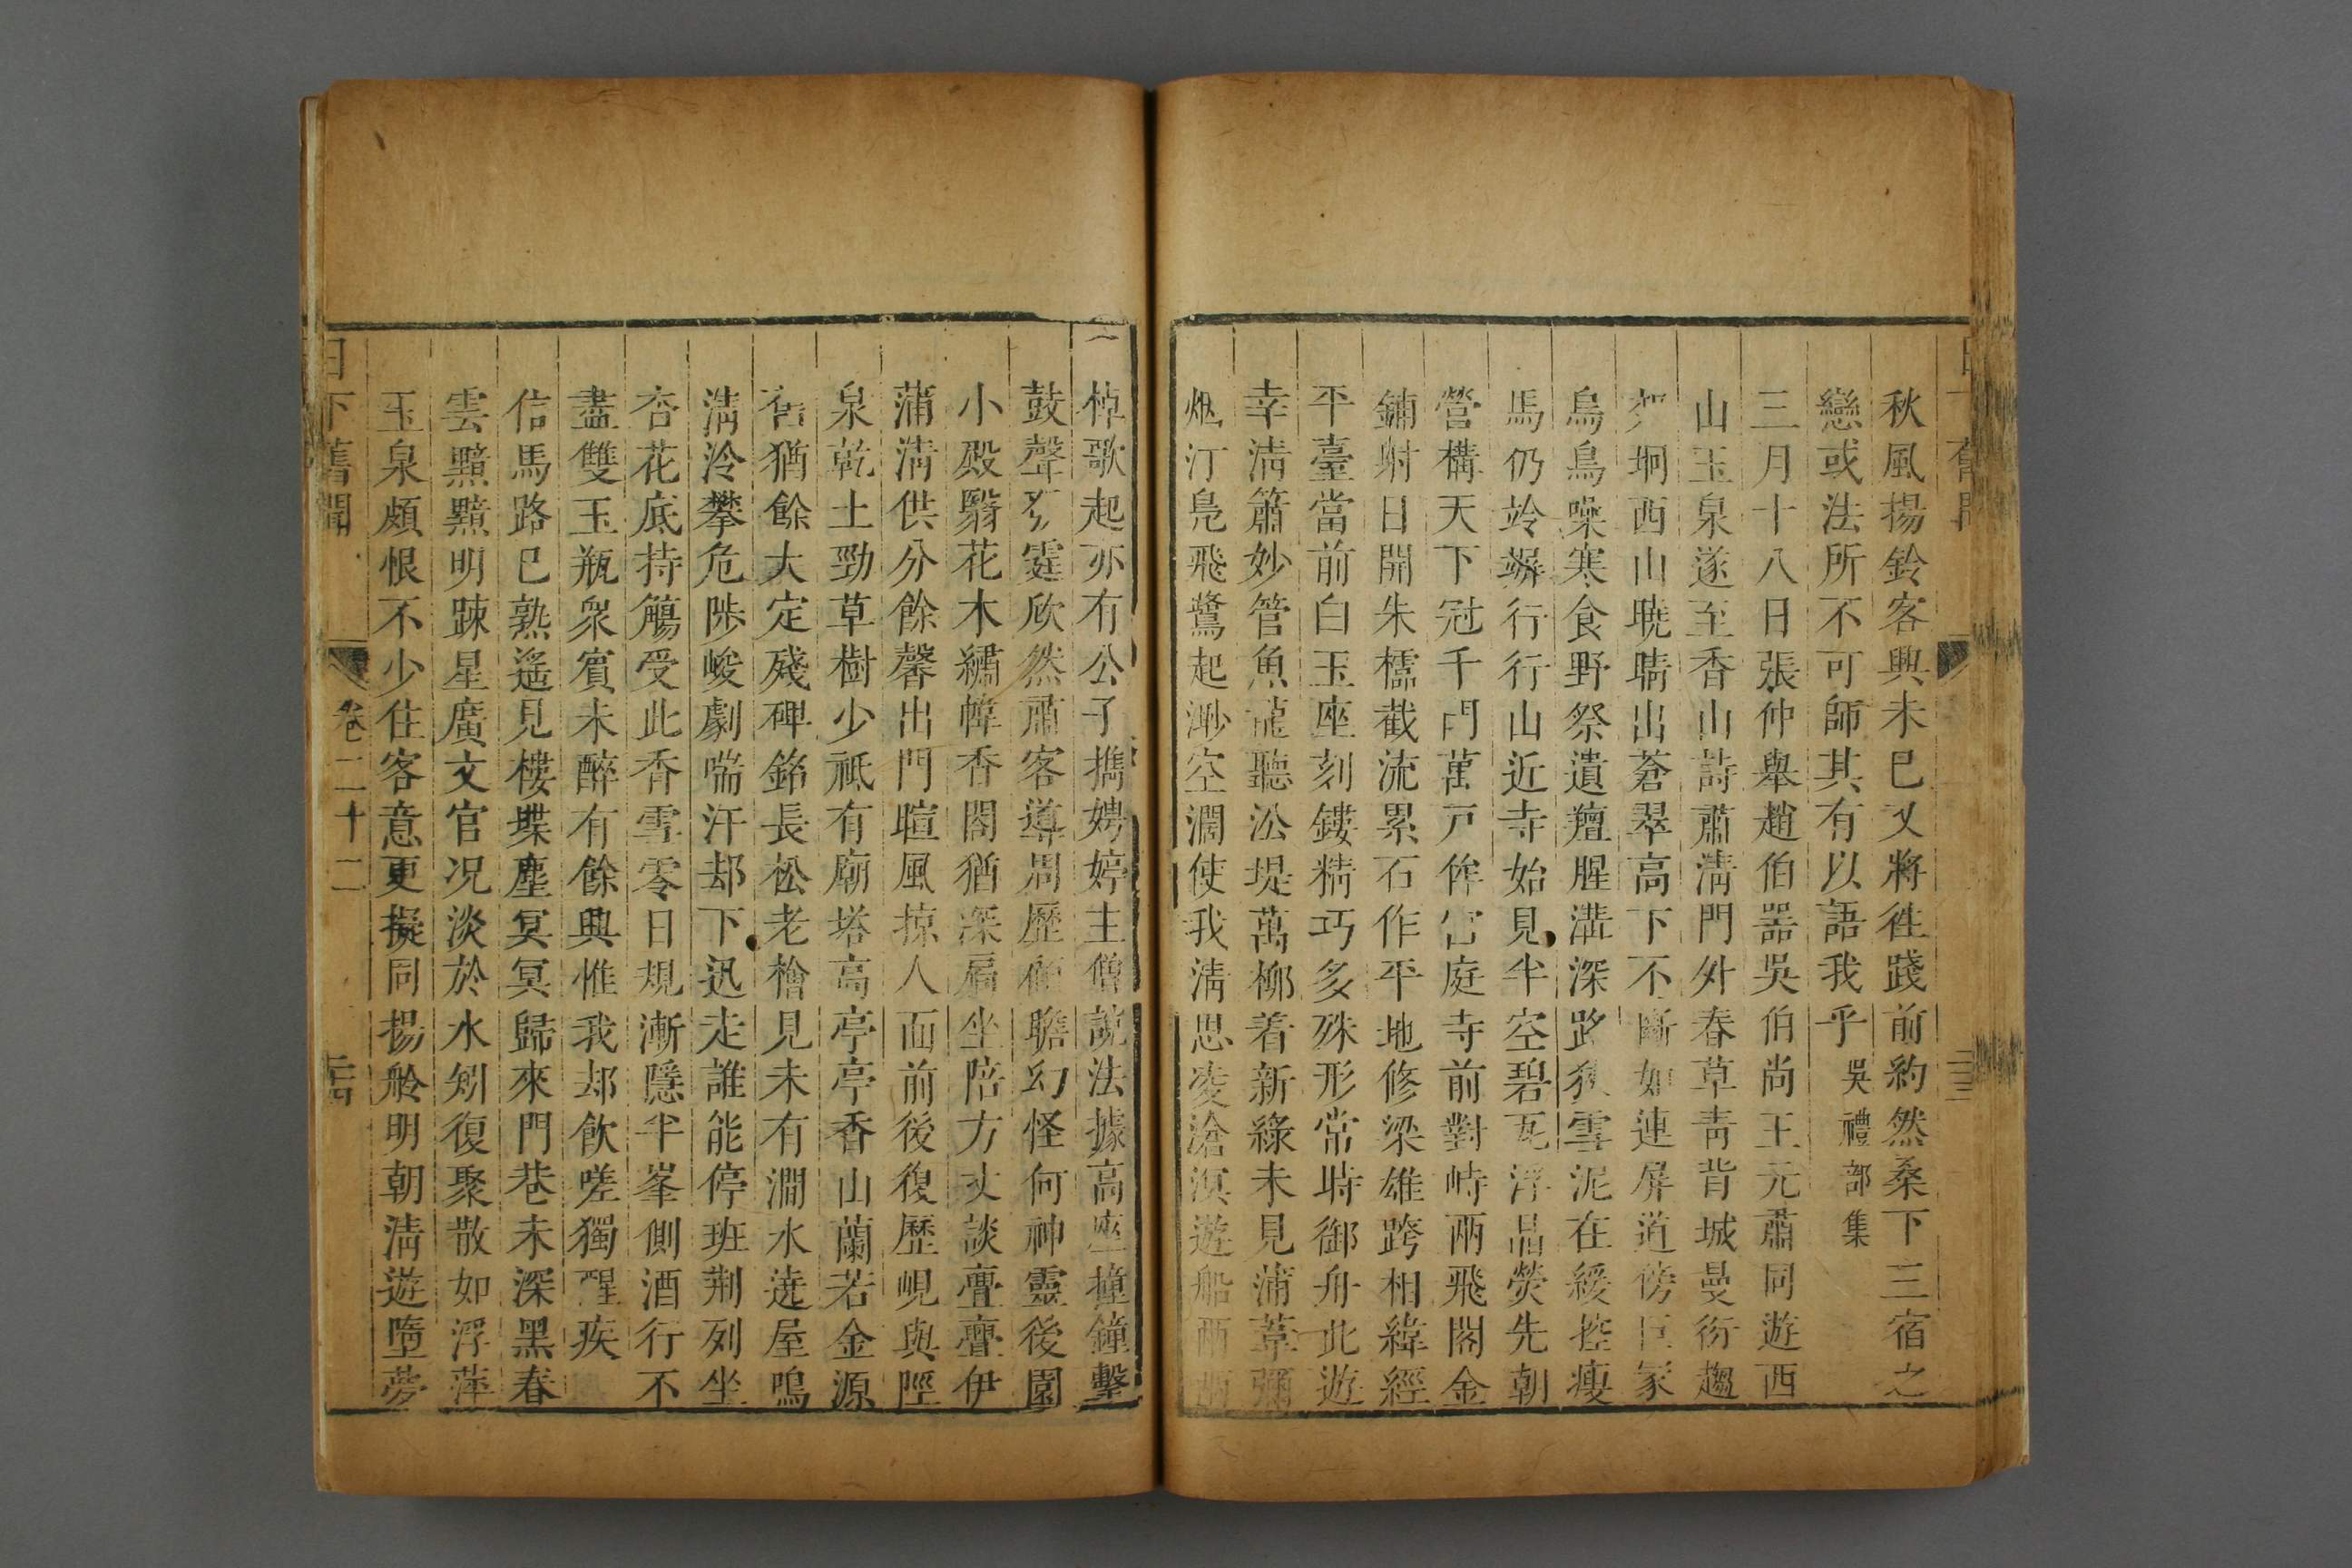 秋風揚鈴客興未已又將徃踐前約然桑下三宿之
戀或法所不可師其有以語我乎吳禮部集
三月十八日張仲舉趙伯器吳伯尚王元肅同遊西
山玉泉遂至香山詩肅淸門外春草靑背城曼衍趨
郊坰西山曉晴出蒼翠高下不斷如連屏道傍巨冢
烏鳥噪寒食野祭遺羶腥溝深路狹雪泥在緩控瘦
馬仍竛竮行行山近寺始見半空碧瓦浮晶熒先朝
營構天下冠千門萬戸侔宫庭寺前對峙兩飛閣金
鋪射日開朱櫺截流累石作平地修梁雄跨相緯經
平臺當前白玉座刻鏤精巧多殊形常時御舟此遊
幸淸簫妙管魚龍聽沿堤萬栁着新綠未見蒲葦彌
烟汀鳧飛鷺起渺空濶使我淸思凌滄溟遊船兩兩
棹歌起亦有公子攜娉婷主僧說法據高座撞鐘擊
鼓聲 霆欣然肅客導周歷 瞻幻怪何神靈後園
小殿翳花木繡幃香閣猶深扃坐陪方丈談亹亹伊
蒲淸供分餘馨出門暄風掠人面前後復歷峴與陘
泉乾土勁草樹少祗有廟塔高亭亭香山蘭若金源
舊猶餘大定殘碑銘長松老檜見未有澗水遶屋鳴
淸泠攀危陟峻劇喘汗却下迅走誰能停班荆列坐
杏花底持觴受此香雪零日規漸隱半峯側酒行不
盡雙玉瓶衆賔未醉有餘興惟我却飲嗟獨醒疾
信馬路已熟遙見樓堞塵冥冥歸來門巷未深黑春
雲黯黯明踈星廣文官况淡於水矧復聚散如浮萍
玉泉頗恨不少住客意更擬同揚舲明朝淸遊墮夢
日下舊聞 卷二十二 二四